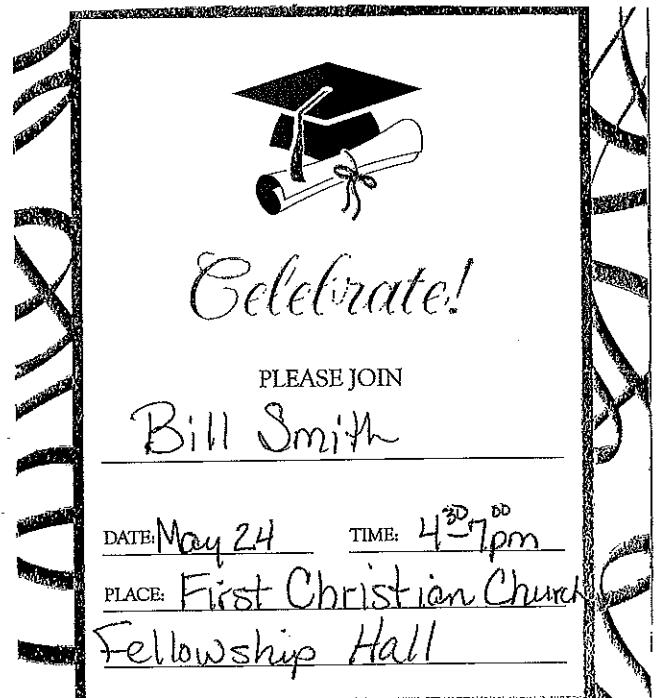 Celebrate!
PLEASE JOIN
Bill Smith
DATE: May 24 TIME: 4³⁰-7⁰⁰pm
PLACE: First Christian Church
Fellowship Hall